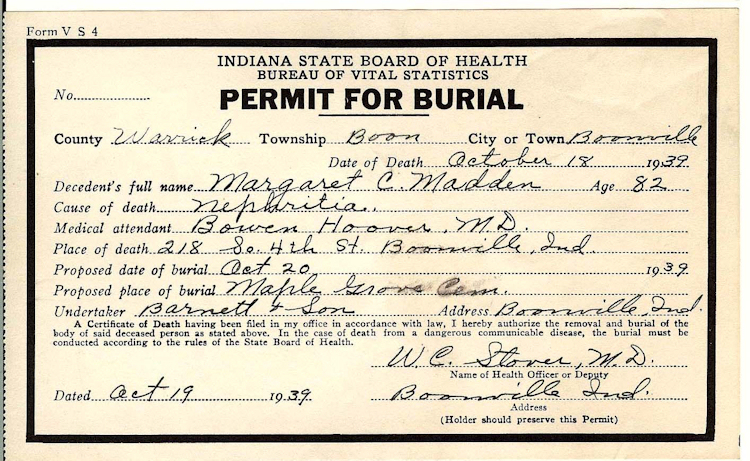 Form V S 4
INDIANA STATE BOARD OF HEALTH
BUREAU OF VITAL STATISTICS
No.
PERMIT FOR BURIAL
County Warrick Township Boon City or Town Boonville
Date of Death October 18 1939
Decedent's full name Margaret C. Madden Age 82
Cause of death Nephritia.
Medical attendant Bowen Hoover, M.D.
Place of death 218 So. 4th St. Boonville, Ind.
Proposed date of burial Oct 20 1939
Proposed place of burial Maple Grove Cem.
Undertaker Barnett & Son Address Boonville, Ind.
A Certificate of Death having been filed in my office in accordance with law, I hereby authorize the removal and burial of the
body of said deceased person as stated above. In the case of death from a dangerous communicable disease, the burial must be
conducted according to the rules of the State Board of Health.
W.C. Stover, M.D.
Name of Health Officer or Deputy
Dated Oct 19 1939. Boonville Ind.
Address
(Holder should preserve this Permit)